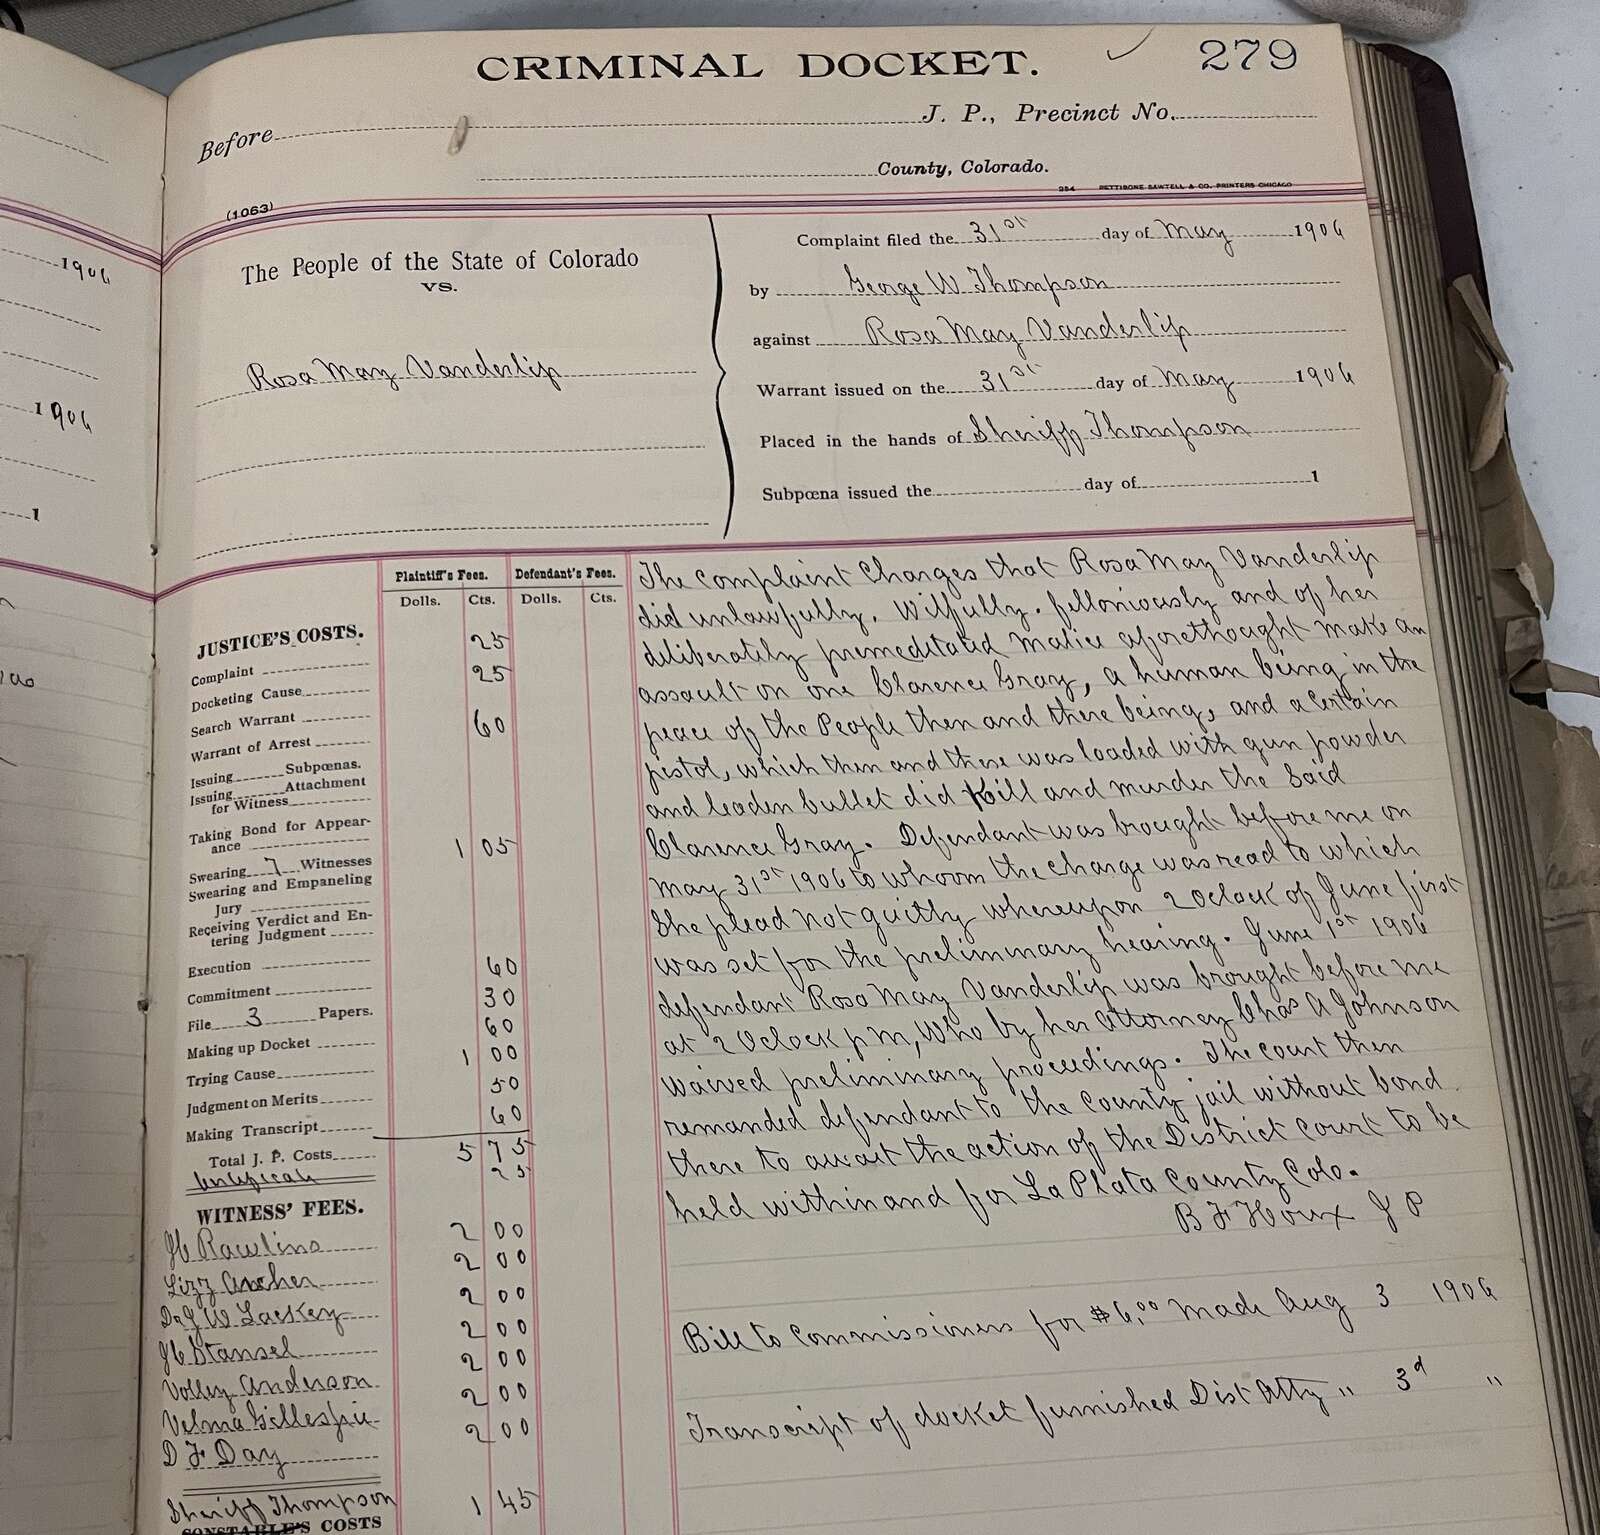 CRIMINAL DOCKET. 279
Before J. P., Precinct No.
County, Colorado.
254 PETTIBONE SAWTELL & CO. PRINTERS CHICAGO
(1063)
The People of the State of Colorado
vs.
Rosa May Vanderlip
Complaint filed the 31st day of May 1906
by George W Thompson
against Rosa May Vanderlip
Warrant issued on the 31st day of May 1906
Placed in the hands of Sheriff Thompson
Subpœna issued the day of 1
1906
1906
1
Plaintiff's Fees. Defendant's Fees.
Dolls. Cts. Dolls. Cts.
JUSTICE'S COSTS.
Complaint 25
Docketing Cause 25
Search Warrant
Warrant of Arrest 60
Issuing Subpœnas.
Issuing Attachment
for Witness
Taking Bond for Appear-
ance
Swearing 7 Witnesses 1 05
Swearing and Empaneling
Jury
Receiving Verdict and En-
tering Judgment
Execution
Commitment 60
File 3 Papers. 30
Making up Docket 60
Trying Cause 1 00
Judgment on Merits 50
Making Transcript 60
Total J. P. Costs 5 75
Certificate 25
WITNESS' FEES.
Rawlins 2 00
Lizz Archer 2 00
Dr G W Lackey 2 00
Stansel 2 00
Volley Anderson 2 00
Velma Gillespie 2 00
D F Day 2 00
Sheriff Thompson 1 45
CONSTABLE'S COSTS
The complaint Charges that Rosa May Vanderlip
did unlawfully, Wilfully. felloniously and of her
deliberately premeditated malice aforethought make an
assault on one Clarence Gray, a human being in the
peace of the People then and there being, and a certain
pistol, which then and there was loaded with gun powder
and leaden bullet did Kill and murder the Said
Clarence Gray. Defendant was brought before me on
May 31st 1906 to whoom the charge was read to which
She plead not guitly whereupon 2 Oclock of June first
was set for the preliminary hearing. June 1st 1906
defendant Rosa May Vanderlip was brought before me
at 2 Oclock p m, Who by her Attorney Chas A Johnson
waived preliminary proceedings. The court then
remanded defendant to the County jail without bond
there to await the action of the District Court to be
held within and for La Plata County Colo.
B F Houx J P
Bill to Commissioners for $6,00 Made Aug 3 1906
Transcript of docket furnished Dist Atty " 3d "